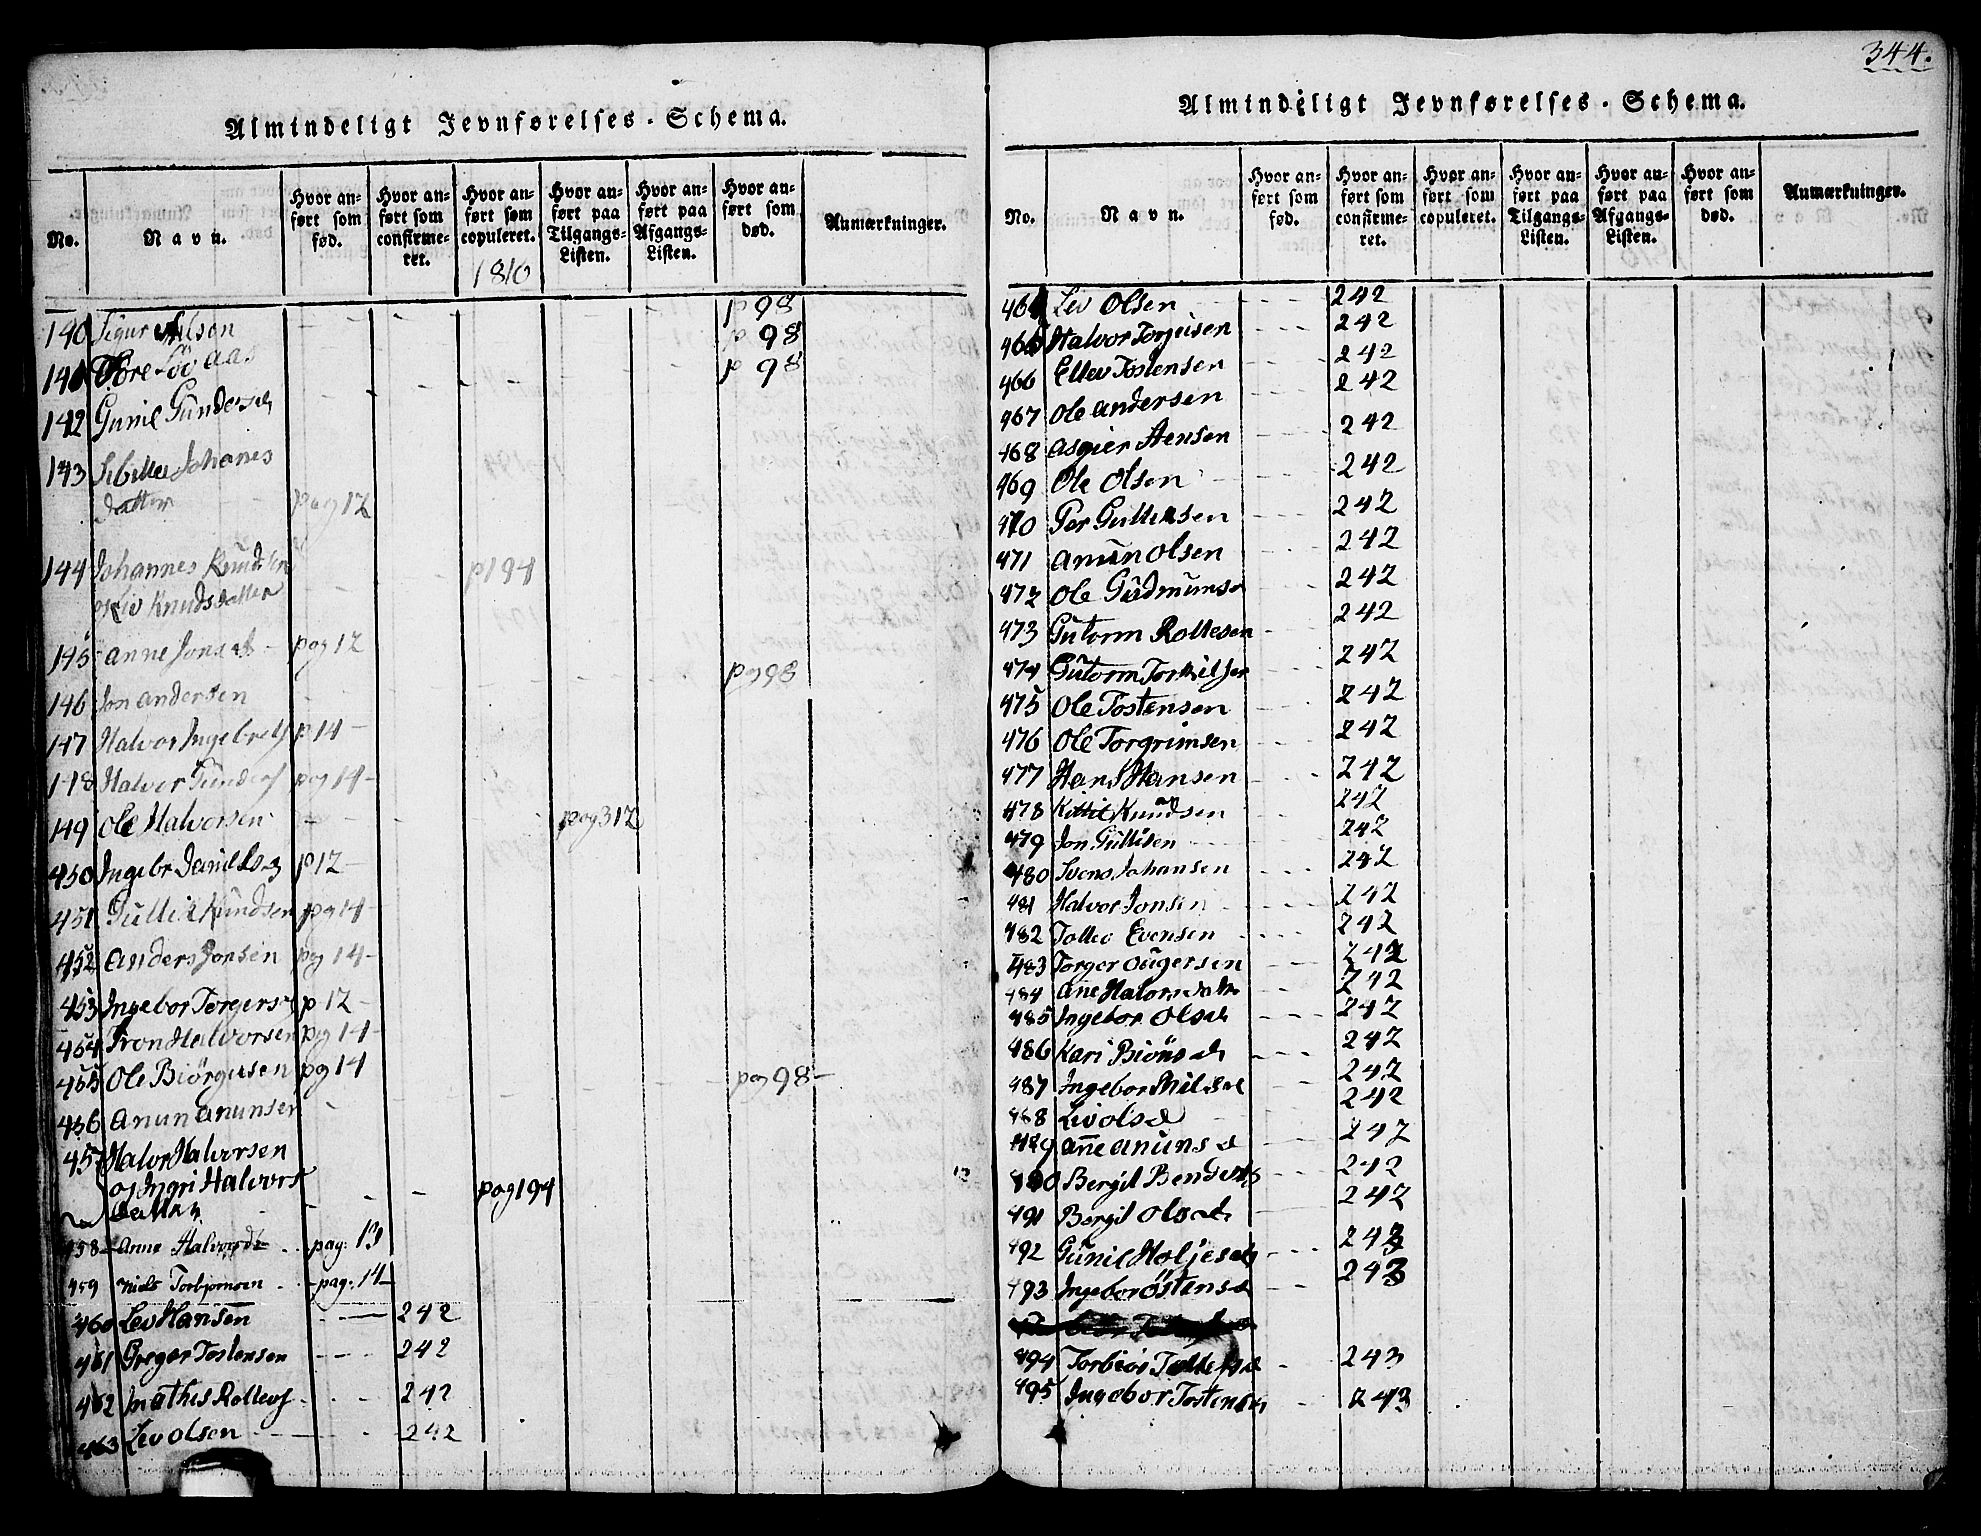 344.
Almindeligt Jevnførelses-Schema.
No.
Navn.
Hvor anført som fød.
Hvor anført som confirmeret.
Hvor anført som copuleret.
Hvor anført paa Tilgangs-Listen.
Hvor anført paa Afgangs-Listen.
Hvor anført som død.
Anmærkninger.
1816
140 Sigur Nilson p 98
141 Tore p 98
142 Gunil Gunders d p 98
143 Sibille Johanes
datter pag 12
144 Johannes Knudsen p194
og Liv Knudsdatter
145 Anne Jons d pag 12
146 Jon andersen pag 98
147 Halvor Ingebrets p 14
148 Halvor Gunders pag 14
149 Ole Halvorsen pag 312
450 Ingebr Daniels p 12
451 Gullik Knudsen pg 14
452 Anders Jonsen pg 14
453 Ingebor Torgers p 12
454 Tron Halvorsen pg 14
455 Ole Biörgusen pg 14
456 Anun anunsen pag 98
457 Halvor Halvorsen
og Ingri Halvors pag 194
datter
458 Anne Halvorsdt pag: 13
459 Niels Torbjornsen pag: 14
460 Lev Hansen 242
461 Greger Tostensen 242
462 Mathis Rollevs 242
463 Lev olsen 242
Almindeligt Jevnførelses-Schema.
No.
Navn.
Hvor anført som fød.
Hvor anført som confirmeret.
Hvor anført som copuleret.
Hvor anført paa Tilgangs-Listen.
Hvor anført paa Afgangs-Listen.
Hvor anført som død.
Anmærkninger.
464 Lev Olsen 242
465 Halvor Torgeisen 242
466 Ellev Tostensen 242
467 Ole andersen 242
468 Asgier Stensen 242
469 Ole Olsen 242
470 Per Gulliksen 242
471 Anun olsen 242
472 Ole Gudmunsen 242
473 Gutorm Rollesen 242
474 Gutorm Torkilsen 242
475 Ole Tostensen 242
476 Ole Torgrimsen 242
477 Hans Hansen 242
478 Kittil Knudsen 242
479 Jon Gullisen 242
480 Svens Johansen 242
481 Halvor Jonsen 242
482 Tollev Evensen 242
483 Torger ougersen 242
484 Ane Halvorsdatter 242
485 Ingebor Olsd 242
486 Kari Biöns d 242
487 Ingebor Nilsd 242
488 Liv ols d 242
489 Ane anuns d 242
490 Bergit Bents d 242
491 Bergit Ols d 242
492 Gunil Holjes d 243
493 Ingebor östens d 243
494 Torbiör Tollefs d 243
495 Ingebor Tostens d 243